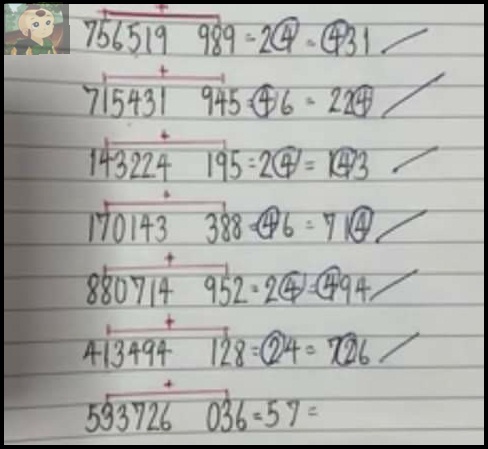 +
756519 989 = 24 = 431
+
715431 945 = 46 = 224
+
143224 195 = 24 = 143
+
170143 388 = 46 = 714
+
880714 952 = 24 = 494
+
413494 128 = 24 = 726
+
593726 036 = 57 =